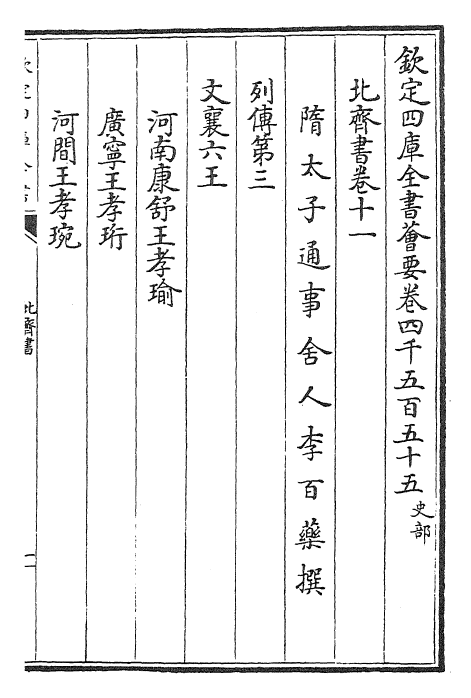 欽定四庫全書薈要卷四千五百五十五 史部
北齊書卷十一
隋太子通事舍人李百藥撰
列傳第三
文襄六王
河南康舒王孝瑜
廣寧王孝珩
河間王孝琬
北齊書